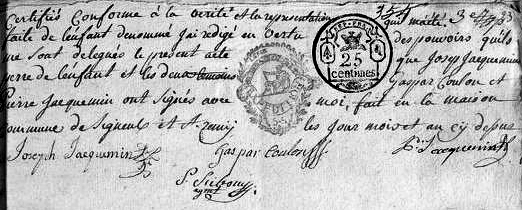 Certifiés Conforme à la verité et la representation qui m'a été
faite de lenfant denommé J'ai redigé en vertu des pouvoirs qu'ils
me sont delegués le present acte que Josep Jacquemin
pere de lenfant et les deux temoins Gaspar Coulon et
Pierre Jacquemin ont signés avec moi, fait en la maison
commune de Signeul et St remij les Jour mois et an cy dessus
Joseph Jacquemin Gaspar Coulon P. Jacquemin
agent
25
centimes